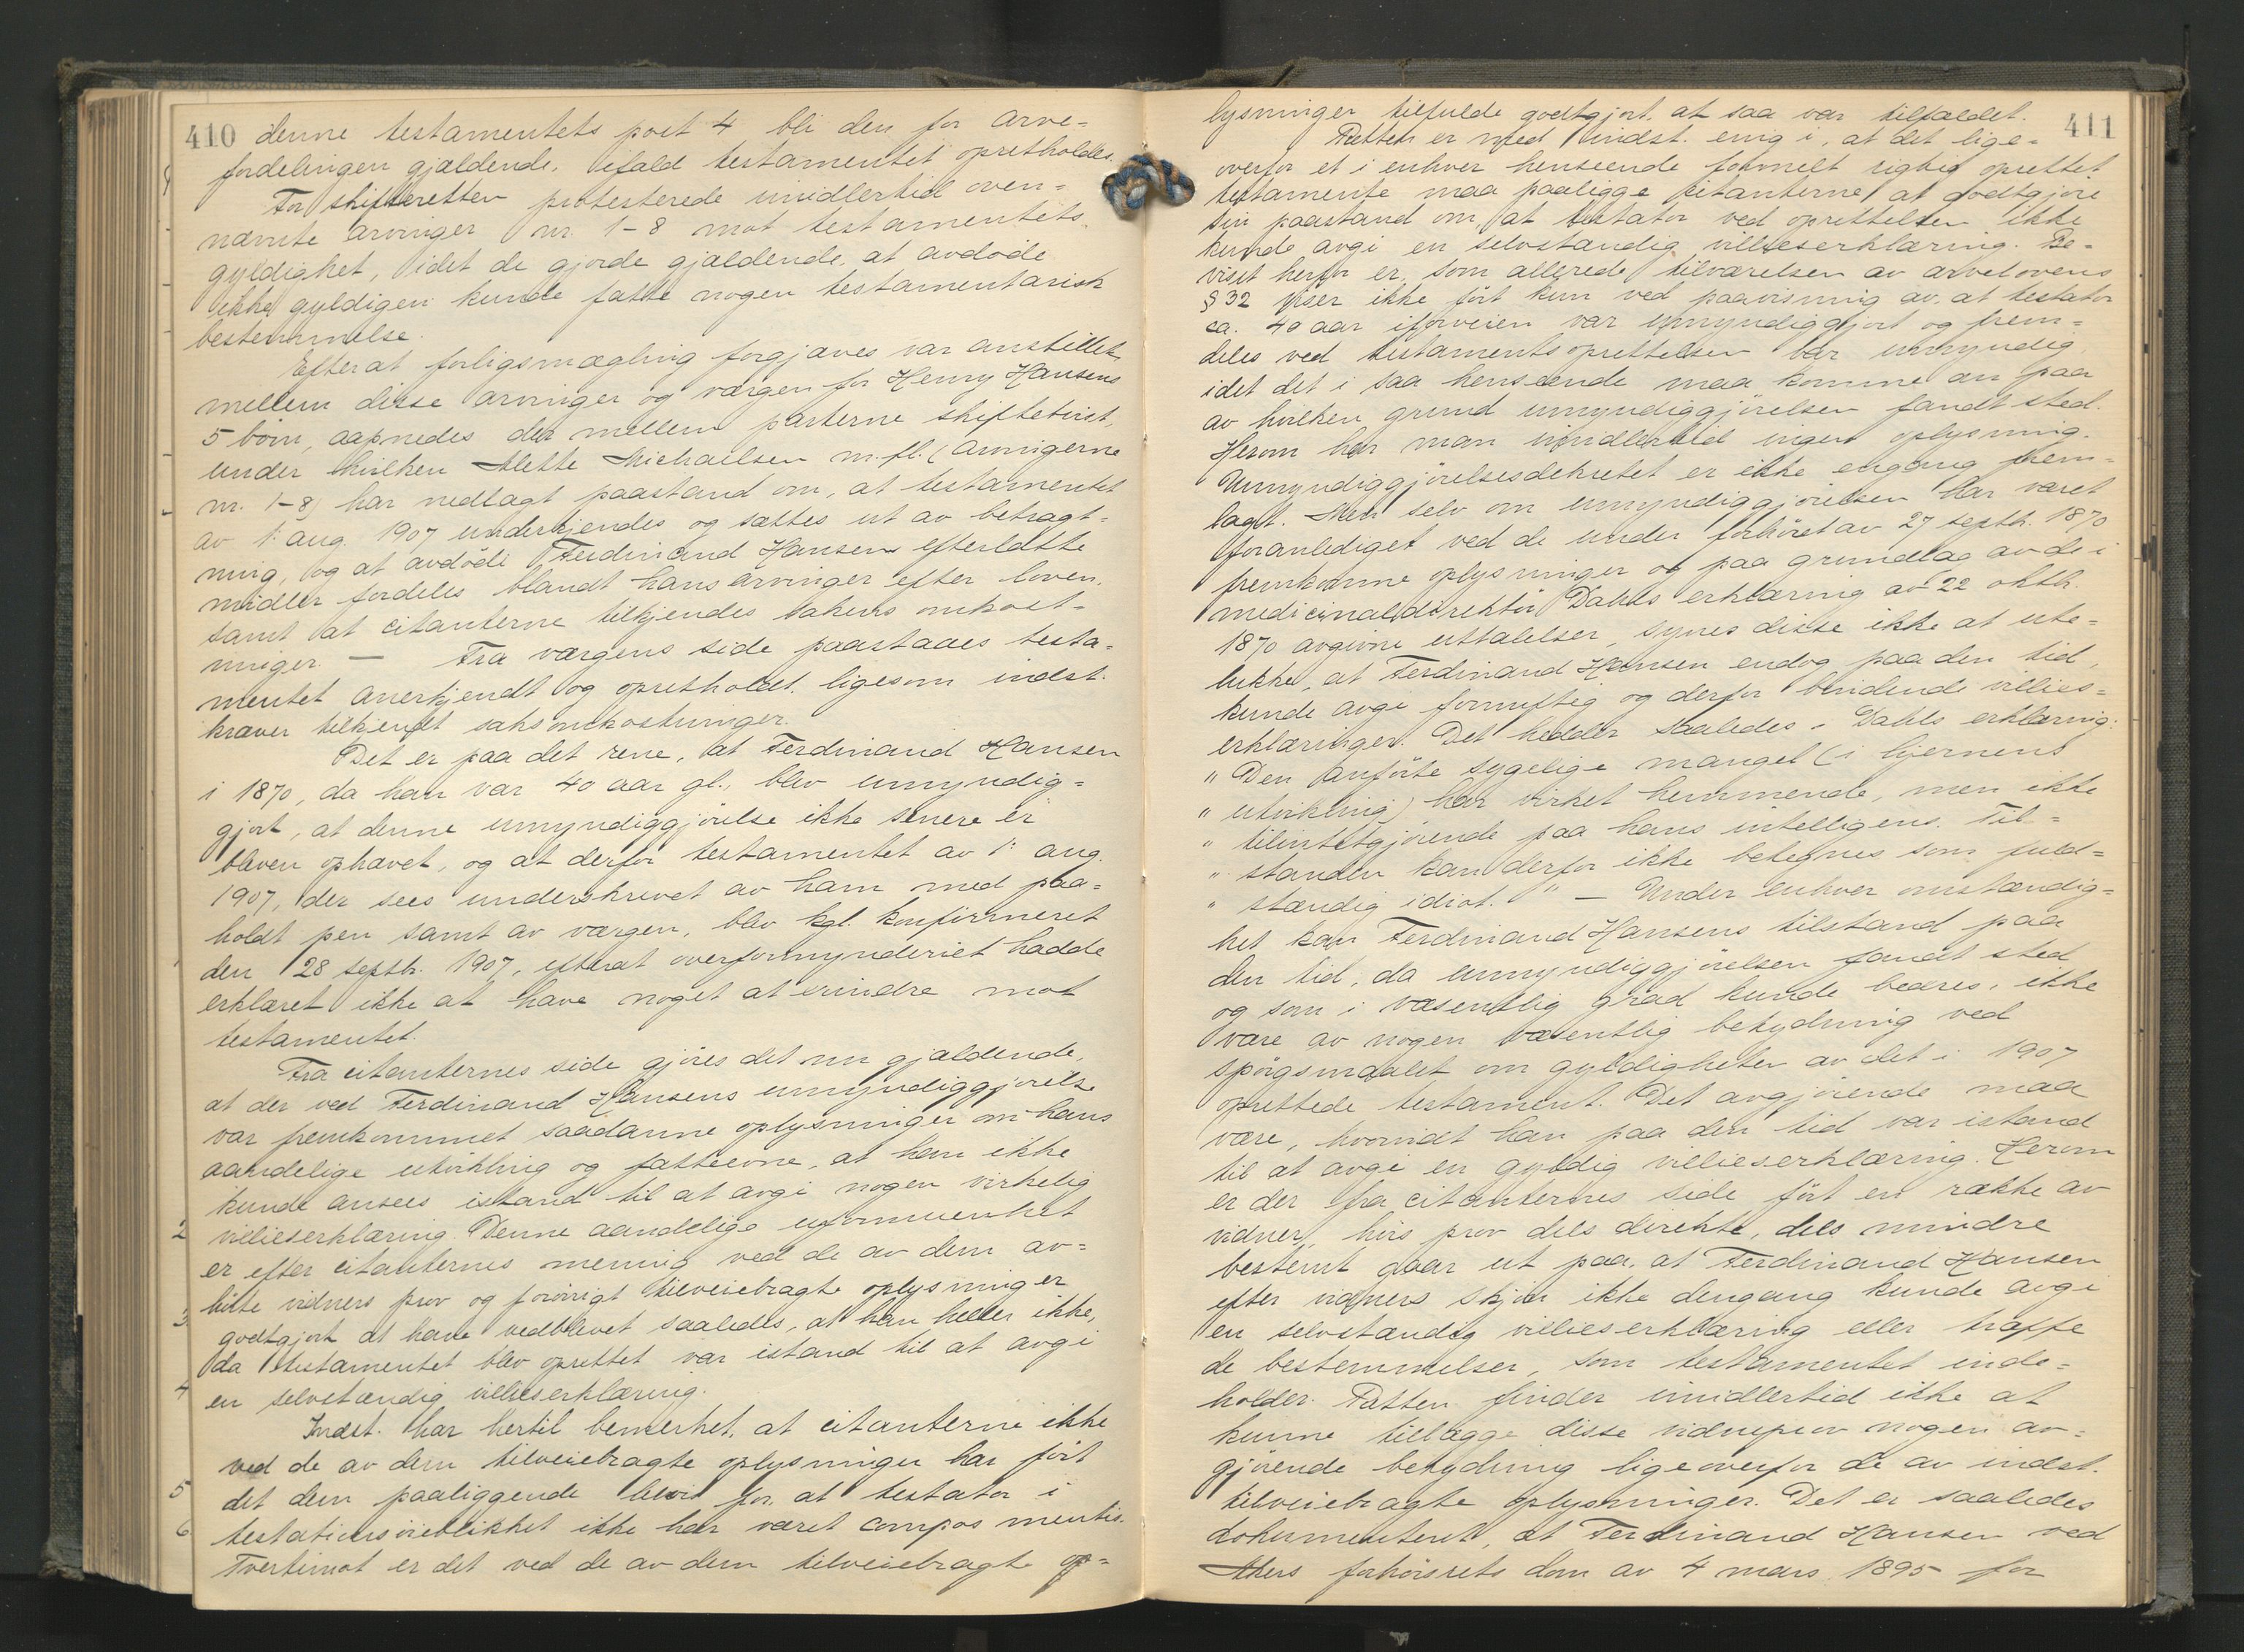 410
denne testamentets post 4 bli den for arve=
fordelingen gjældende, ifald testamentet opretholdes.
For skifteretten protesterede imidlertid oven=
nævnte arvinger nr. 1-8 mot testamentets
gyldighet, idet de gjorde gjældende, at avdøde
ikke gyldigen kunde fatte nogen testamentarisk
bestemmelse.
Efterat forligsmægling forgjæves var anstillet
mellem disse arvinger og værgen for Henny Hansens
5 børn, aapnedes der mellem parterne skiftetvist,
under hvilken Alette Michaelsen m.fl. (arvingerne
nr. 1-8) har nedlagt paastand om, at testamentet
av 1: aug. 1907 underkjendes og sættes ut av betragt=
ning, og at avdøde Ferdinand Hansens efterlatte
midler fordeles blandt hans arvinger efter loven,
samt at citanterne tilkjendes sakens omkost=
ninger. — Fra værgens side paastaaes testa=
mentet anerkjendt og opretholdt, ligesom indst.
kræver tilkjendt saksomkostninger.
Det er paa det rene, at Ferdinand Hansen
i 1870, da han var 40 aar gl., blev umyndig=
gjort, at denne umyndiggjørelse ikke senere er
bleven ophævet, og at derfor testamentet av 1: aug.
1907, der sees underskrevet av ham med paa=
holdt pen samt av værgen, blev kgl. konfirmeret
den 28 septb. 1907, efterat overformynderiet hadde
erklæret ikke at have noget at erindre mot
testamentet.
Fra citanternes side gjøres det nu gjældende,
at der ved Ferdinand Hansens umyndiggjørelse
var fremkommet saadanne oplysninger om hans
aandelige utvikling og fatteevne, at han ikke
kunde ansees istand til at avgi nogen virkelig
2 villieserklæring. Denne aandelige uformuenhet
er efter citanternes mening ved de av dem av=
hørte vidners prov og forøvrigt tilveiebragte oplysninger
3 godtgjort at have vedblevet saaledes, at han heller ikke,
da testamentet blev oprettet var istand til at avgi
4 en selvstændig villieserklæring.
Indst. har hertil bemerket, at citanterne ikke
ved de av dem tilveiebragte oplysninger har ført
5 det dem paaliggende bevis for, at testator i
6 testationsøieblikket ikke har været compos mentis.
Tvertimot er det ved de av dem tilveiebragte op=
411
lysninger tilfulde godtgjort, at saa var tilfældet.
Retten er med indst. enig i, at det lige=
overfor et i enhver henseende formelt rigtig oprettet
testamente maa paaligge citanterne at godtgjøre
sin paastand om, at testator ved oprettelsen ikke
kunde avgi en selvstændig villieserklæring. Be=
viset herfor er, som allerede tilværelsen av arvelovens
§ 32 viser ikke ført kun ved paavisning av, at testator
ca. 40 aar iforveien var umyndiggjort og frem=
deles ved testamentsoprettelsen var umyndig,
idet det i saa henseende maa komme an paa
av hvilken grund umyndiggjørelsen fandt sted.
Herom har man imidlertid ingen oplysning.
Umyndiggjørelsesdekretet er ikke engang frem=
lagt. Men selv om umyndiggjørelsen har været
foranlediget ved de under forhøret av 27 septb. 1870
fremkomne oplysninger og paa grundlag av de i
medicinaldirektør Dahls erklæring av 22 oktb.
1870 avgivne uttalelser, synes disse ikke at ute=
lukke, at Ferdinand Hansen endog paa den tid,
kunde avgi fornuftig og derfor bindende villies=
erklæringer. Det hedder saaledes i Dahls erklæring:
" Den anførte sygelige mangel (i hjernens
" utvikling) har virket hemmende, men ikke
" tilintetgjørende paa hans intelligens. Til=
" standen kan derfor ikke betegnes som fuld=
" stændig idiot. " — Under enhver omstændig=
het kan Ferdinand Hansens tilstand paa
den tid, da umyndiggjørelsen fandt sted
og som i væsentlig grad kunde bedres, ikke
være av nogen væsentlig betydning ved
spørgsmaalet om gyldigheten av det i 1907
oprettede testament. Det avgjørende maa
være, hvorvidt han paa den tid var istand
til at avgi en gyldig villieserklæring. Herom
er der fra citanternes side ført en række av
vidner, hvis prov dels direkte, dels mindre
bestemt gaar ut paa, at Ferdinand Hansen
efter vidners skjøn ikke dengang kunde avgi
en selvstændig villieserklæring eller træffe
de bestemmelser, som testamentet inde=
holder. Retten finder imidlertid ikke at
kunne tillægge disse vidneprov nogen av=
gjørende betydning ligeoverfor de av indst.
tilveiebragte oplysninger. Det er saaledes
dokumenteret, at Ferdinand Hansen ved
Akers forhørsrets dom av 4 mars 1895 for